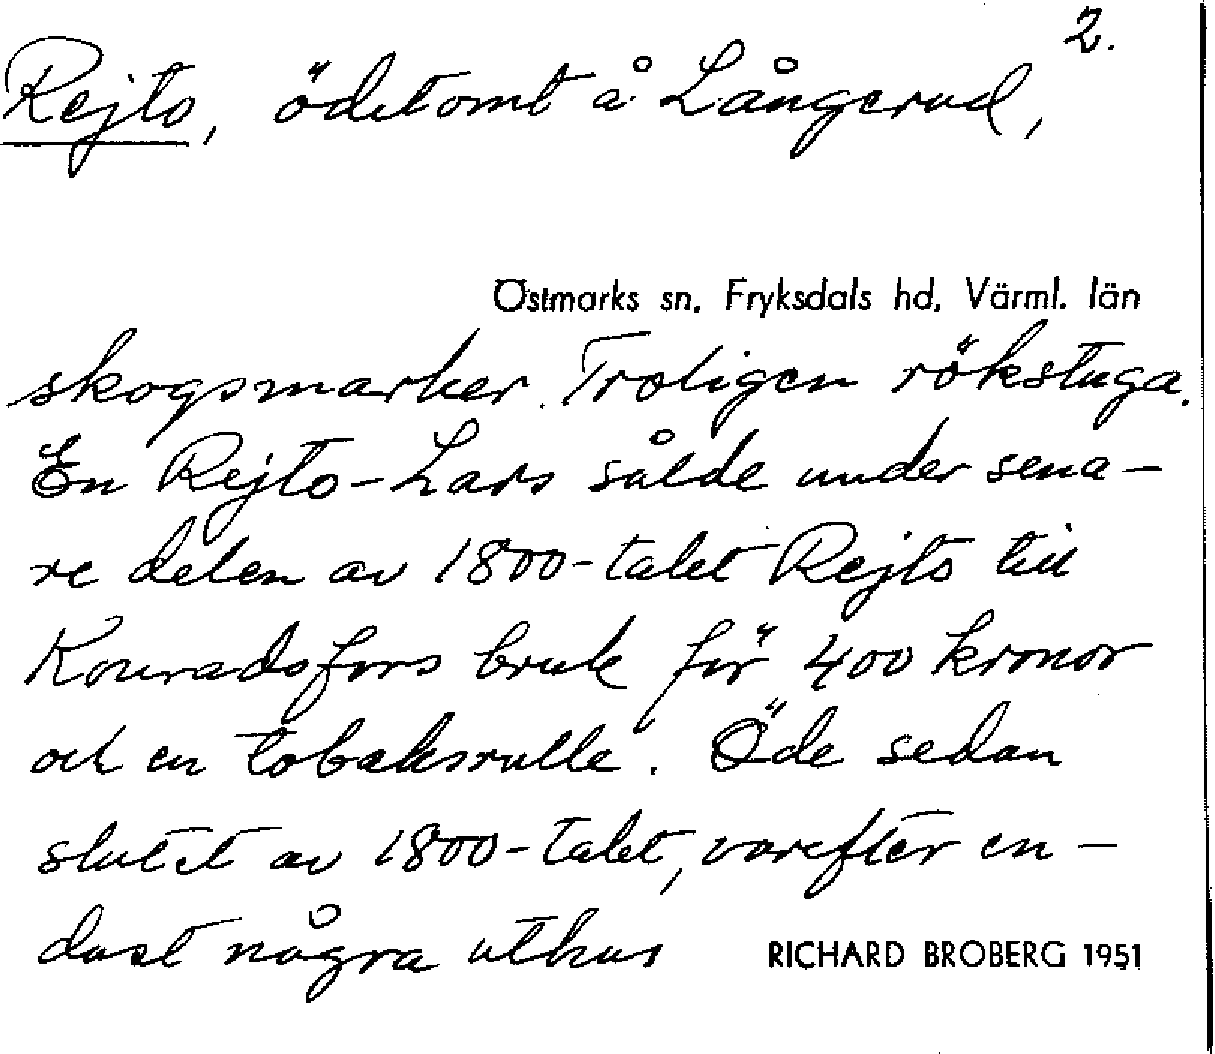 2.
Rejto, ödetomt å Långerud,
Östmarks sn. Fryksdals hd, Värml. län
skogsmarker. Troligen rökstuga.
En Rejto-Lars sålde under sena-
re delen av 1800-talet Rejto till
Konradsfors bruk för 400 kronor
och en tobaksrulle. Öde sedan
slutet av 1800-talet, varefter en-
dast några uthus
RICHARD BROBERG 1951